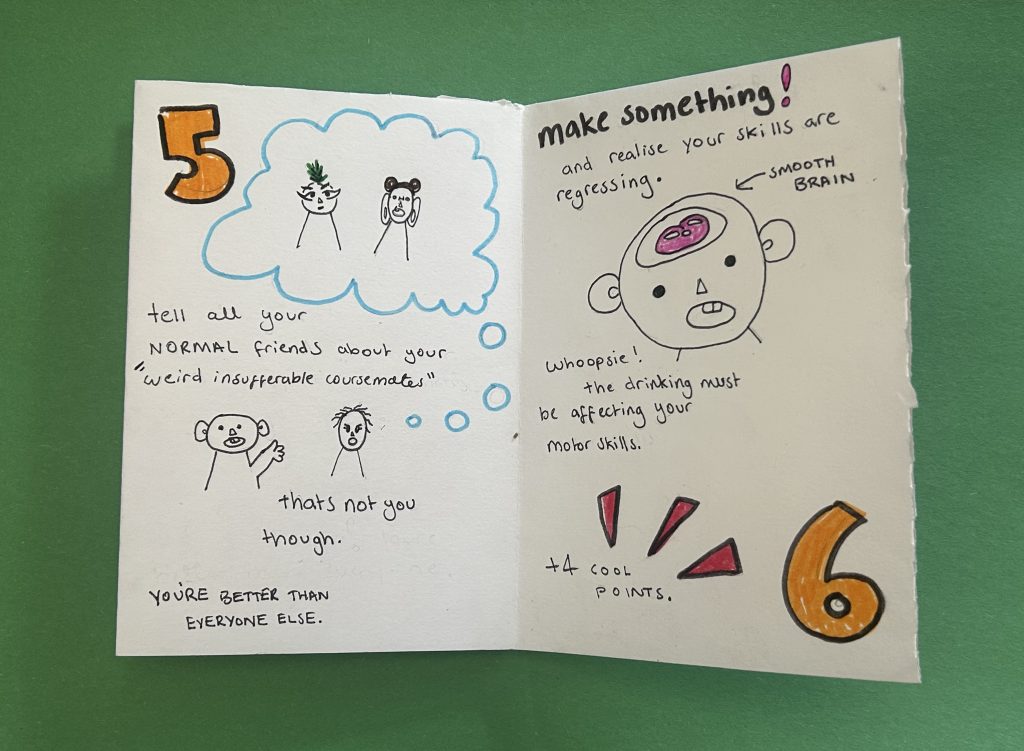 5
tell all your
NORMAL friends about your
"weird insufferable coursemates"
thats not you
though.
YOU'RE BETTER THAN
EVERYONE ELSE.
make something!
and realise your skills are
regressing.
SMOOTH
BRAIN
whoopsie!
the drinking must
be affecting your
motor skills.
+4 COOL
POINTS.
6